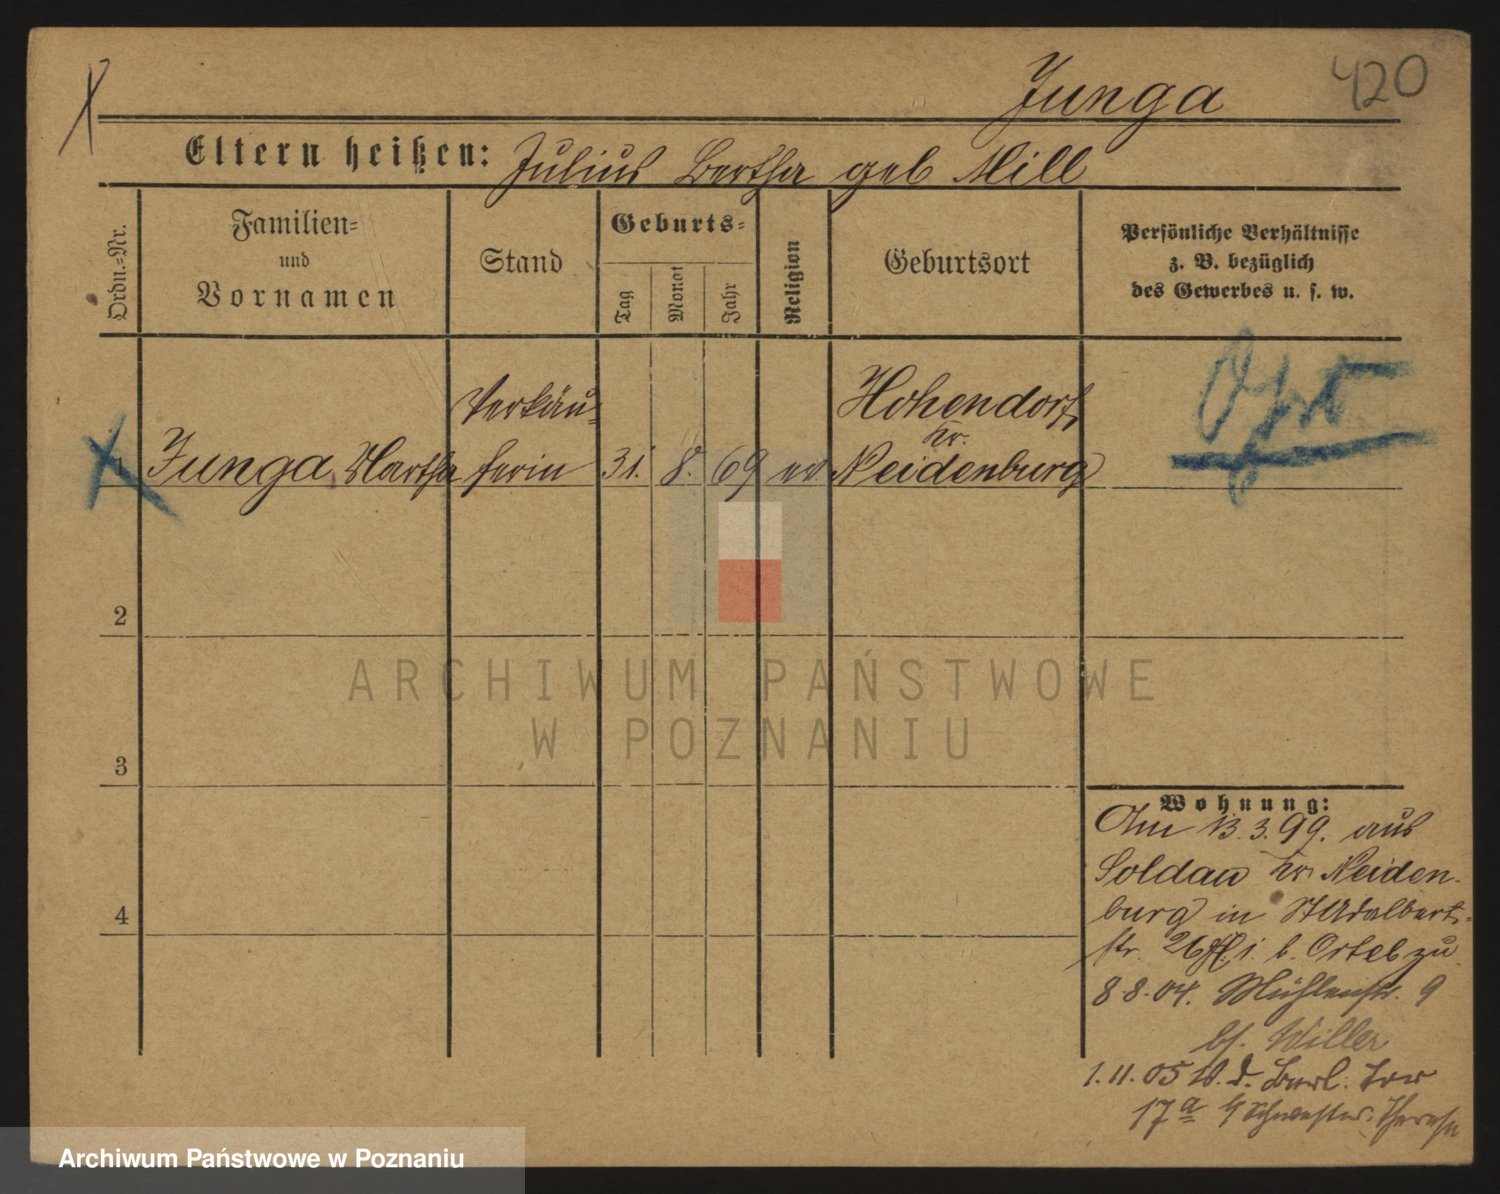 Junga
420
Eltern heißen: Julius Bertha geb Mill
Ordn.-Nr.
Familien-
und
Vornamen
Stand
Geburts-
Tag
Monat
Jahr
Religion
Geburtsort
Persönliche Verhältnisse
z. B. bezüglich
des Gewerbes u. s. w.
1 Junga Martha Verkäu-
ferin 31. 8. 69 ev. Hohendorf
Kr.
Neidenburg
2
3
4
ARCHIWUM PAŃSTWOWE
W POZNANIU
Wohnung:
Am 13.3.99. aus
Soldau Kr. Neiden-
burg in St Adalbert-
str. 26 b. Ortel zu
8.8.04. Mühlenstr. 9
bf. Willer
1.11.05
17a Schwester Therese
Archiwum Państwowe w Poznaniu